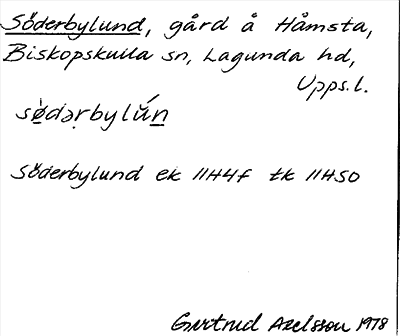 Söderbylund, gård å Håmsta,
Biskopskulla sn, Lagunda hd,
Upps.l.
sø̀dərbylún
Söderbylund ek 11H4f tk 11HSO
Gertrud Axelsson 1978